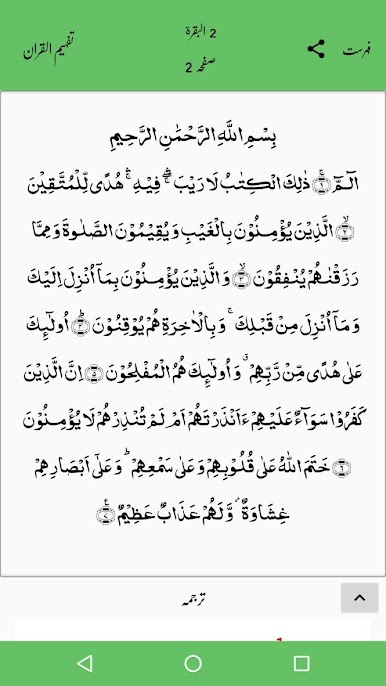 2 البقرة
فہرست
تفہیم القرآن
صفحہ 2
بِسْمِ اللَّهِ الرَّحْمَٰنِ الرَّحِيمِ
الٓمّٓ ۚ﴿۱﴾ ذٰلِكَ الْكِتٰبُ لَا رَيْبَ ۛۖ فِيْهِ ۛۚ هُدًى لِّلْمُتَّقِيْنَ
ۙ﴿۲﴾ الَّذِيْنَ يُؤْمِنُوْنَ بِالْغَيْبِ وَ يُقِيْمُوْنَ الصَّلٰوةَ وَ مِمَّا
رَزَقْنٰهُمْ يُنْفِقُوْنَ ۙ﴿۳﴾ وَ الَّذِيْنَ يُؤْمِنُوْنَ بِمَاۤ اُنْزِلَ اِلَيْكَ
وَ مَاۤ اُنْزِلَ مِنْ قَبْلِكَ ۚ وَ بِالْاٰخِرَةِ هُمْ يُوْقِنُوْنَ ؕ﴿۴﴾ اُولٰٓئِكَ
عَلٰى هُدًى مِّنْ رَّبِّهِمْ ۗ وَ اُولٰٓئِكَ هُمُ الْمُفْلِحُوْنَ ﴿۵﴾ اِنَّ الَّذِيْنَ
كَفَرُوْا سَوَآءٌ عَلَيْهِمْ ءَاَنْذَرْتَهُمْ اَمْ لَمْ تُنْذِرْهُمْ لَا يُؤْمِنُوْنَ
﴿۶﴾ خَتَمَ اللّٰهُ عَلٰى قُلُوْبِهِمْ وَ عَلٰى سَمْعِهِمْ ؕ وَ عَلٰۤى اَبْصَارِهِمْ
غِشَاوَةٌ ۫ وَّ لَهُمْ عَذَابٌ عَظِيْمٌ ۠﴿۷﴾
ترجمہ